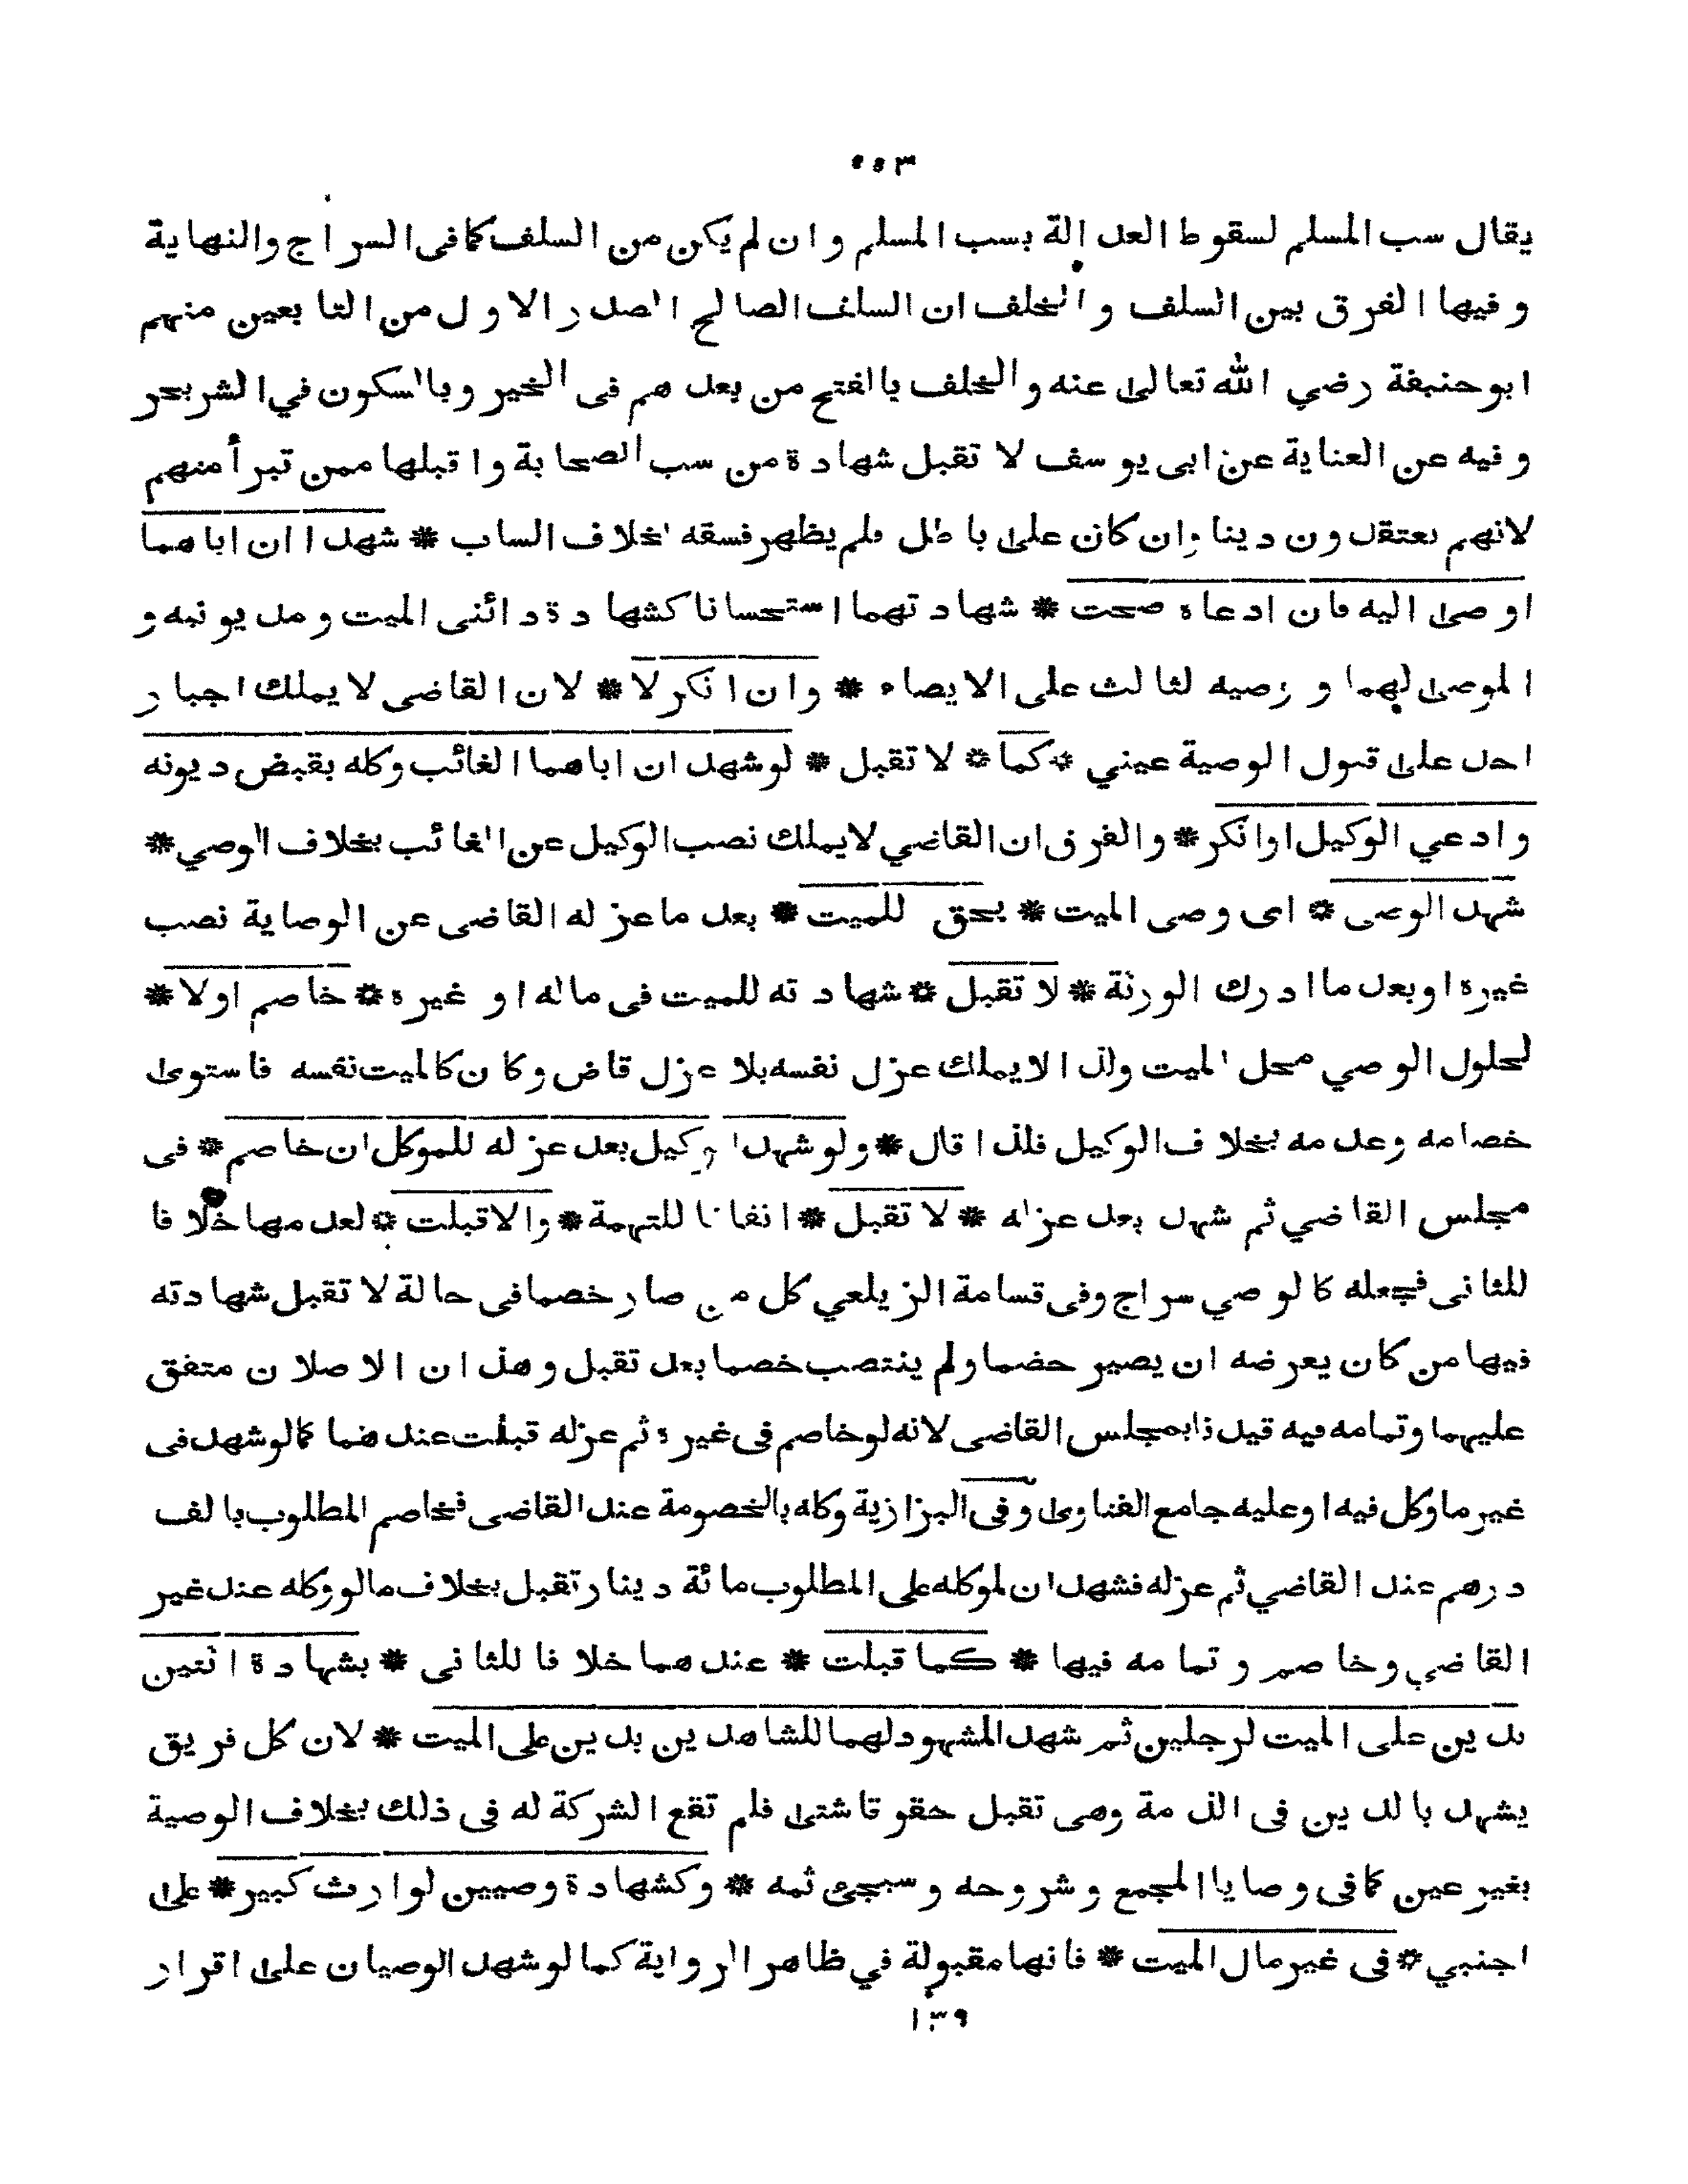 ٥٥٣
يقال سب المسلم لسقوط العدالة بسب المسلم وان لم يكن من السلف كما فى السراج والنهاية
وفيها الفرق بين السلف والخلف ان السلف الصالح الصدر الاول من التابعين منهم
ابو حنيفة رضي الله تعالى عنه والخلف بالفتح من بعدهم فى الخير وبالسكون في الشر بحر
وفيه عن العناية عن ابى يوسف لا تقبل شهادة من سب الصحابة واقبلها ممن تبرأ منهم
لانهم يعتقدون دينا وان كان على باطل فلم يظهر فسقه بخلاف الساب * شهدا ان اباهما
اوصى اليه فان ادعاه صحت * شهادتهما استحسانا كشهادة دائنى الميت ومديونيه و
الموصى لهما و وصيه لثالث على الايصاء * وان انكر لا * لان القاضى لا يملك اجبار
احد على قبول الوصية عيني * كما * لا تقبل * لو شهد ان اباهما الغائب وكله بقبض ديونه
وادعي الوكيل او انكر * والفرق ان القاضي لايملك نصب الوكيل عن الغائب بخلاف الوصي *
شهد الوصى * اى وصى الميت * بحق للميت * بعد ما عزله القاضى عن الوصاية نصب
غيره او بعد ما ادرك الورثة * لا تقبل * شهادته للميت فى ماله او غيره * خاصم اولا *
لحلول الوصي محل الميت ولذا لايملك عزل نفسه بلا عزل قاض وكان كالميت نفسه فاستوى
خصامه وعدمه بخلاف الوكيل فلذا قال * ولو شهد الوكيل بعد عزله للموكل ان خاصم * فى
مجلس القاضي ثم شهد بعد عزله * لا تقبل * اتفاقا للتهمة * والا قبلت * لعدمها خلافا
للثانى فجعله كالوصي سراج وفى قسامة الزيلعي كل من صار خصما فى حالة لا تقبل شهادته
فيها من كان يعرضه ان يصير خصما ولم ينتصب خصما بعد تقبل وهذان الاصلان متفق
عليهما وتمامه فيه قيدنا بمجلس القاضى لانه لو خاصم فى غيره ثم عزله قبلت عندهما كما لو شهد فى
غير ما وكل فيه او عليه جامع الفتاوى وفى البزازية وكله بالخصومة عند القاضى فخاصم المطلوب بالف
درهم عند القاضي ثم عزله فشهد ان لموكله على المطلوب مائة دينار تقبل بخلاف ما لو وكله عند غير
القاضي وخاصم وتمامه فيها * كما قبلت * عندهما خلافا للثانى * بشهادة اثنين
بدين على الميت لرجلين ثم شهد المشهود لهما للشاهدين بدين على الميت * لان كل فريق
يشهد بالدين فى الذمة وهى تقبل حقوقا شتى فلم تقع الشركة له فى ذلك بخلاف الوصية
بغير عين كما فى وصايا المجمع وشروحه وسيجئ ثمه * وكشهادة وصيين لوارث كبير * على
اجنبي * فى غير مال الميت * فانها مقبولة في ظاهر الرواية كما لو شهد الوصيان على اقرار
١٣٩